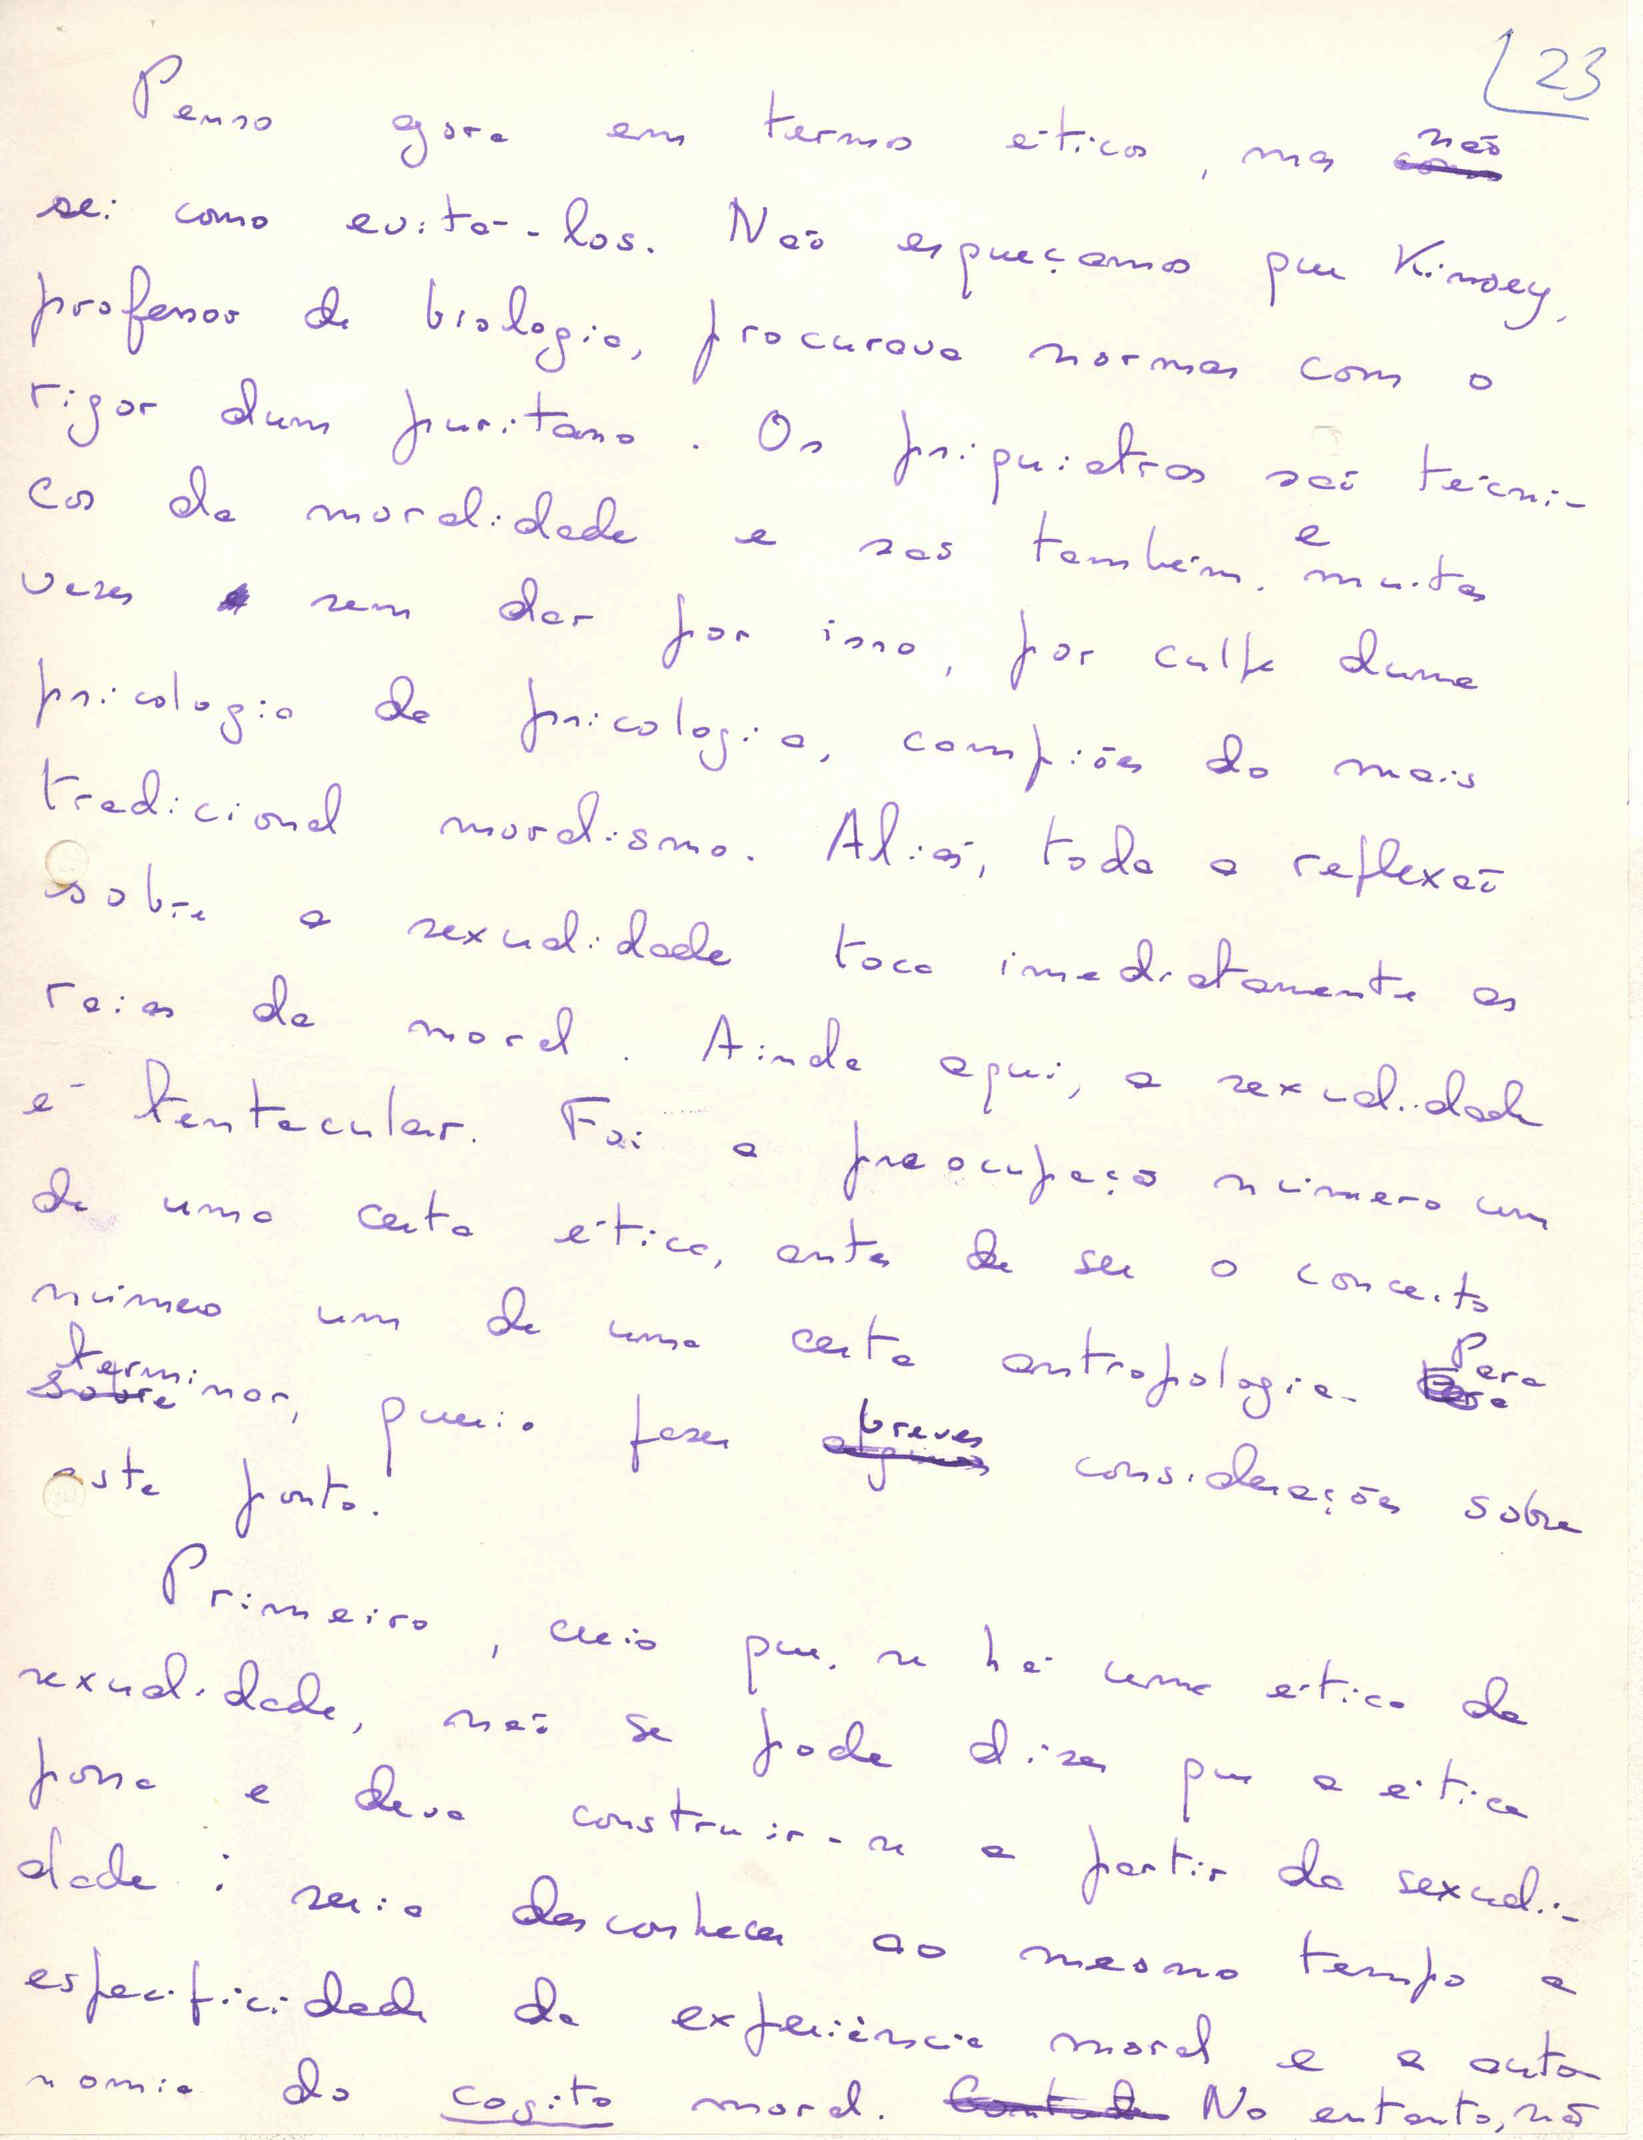 23
Penso agora em termos éticos, mas não
sei como evitá-los. Não esqueçamos que Kinsey,
professor de biologia, procurava normas com o
rigor dum puritano. Os psiquiatras são técni-
cos da moralidade e são também, e muitas
vezes sem dar por isso, por culpa duma
psicologia da psicologia, campiões do mais
tradicional moralismo. Aliás, toda a reflexão
sobre a sexualidade toca imediatamente as
raias da moral. Ainda aqui, a sexualidade
é tentacular. Foi a preocupação número um
de uma certa ética, antes de ser o conceito
número um de uma certa antropologia. Para
terminar, queria fazer breves considerações sobre
este ponto.
Primeiro, creio que, se há uma ética da
sexualidade, não se pode dizer que a ética
possa e deva construir-se a partir da sexuali-
dade: seria desconhecer ao mesmo tempo a
especificidade da experiência moral e a auto-
nomia do cogito moral. No entanto, não